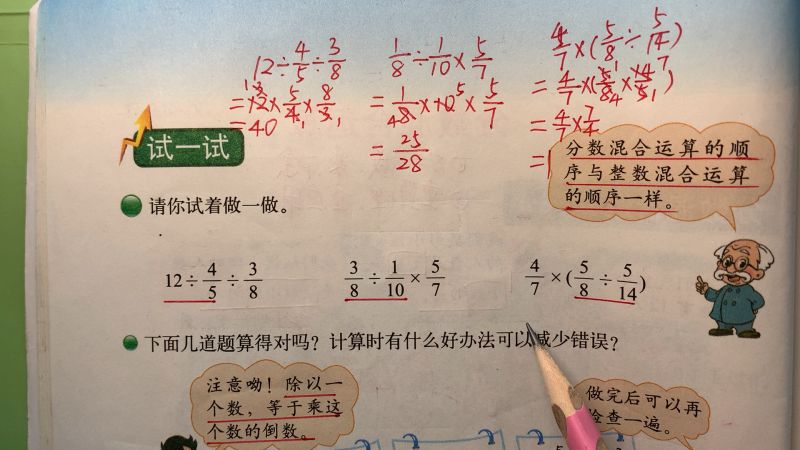 12÷4/5÷3/8
=12×5/4×8/3
=40
1/8÷1/10×5/7
=1/8×10×5/7
=25/28
4/7×(5/8÷5/14)
=4/7×(5/8×14/5)
=4/7×7/4
试一试
分数混合运算的顺
序与整数混合运算
的顺序一样。
请你试着做一做。
12÷4/5÷3/8
3/8÷1/10×5/7
4/7×(5/8÷5/14)
下面几道题算得对吗?计算时有什么好办法可以减少错误?
注意呦!除以一
个数,等于乘这
个数的倒数。
做完后可以再
检查一遍。